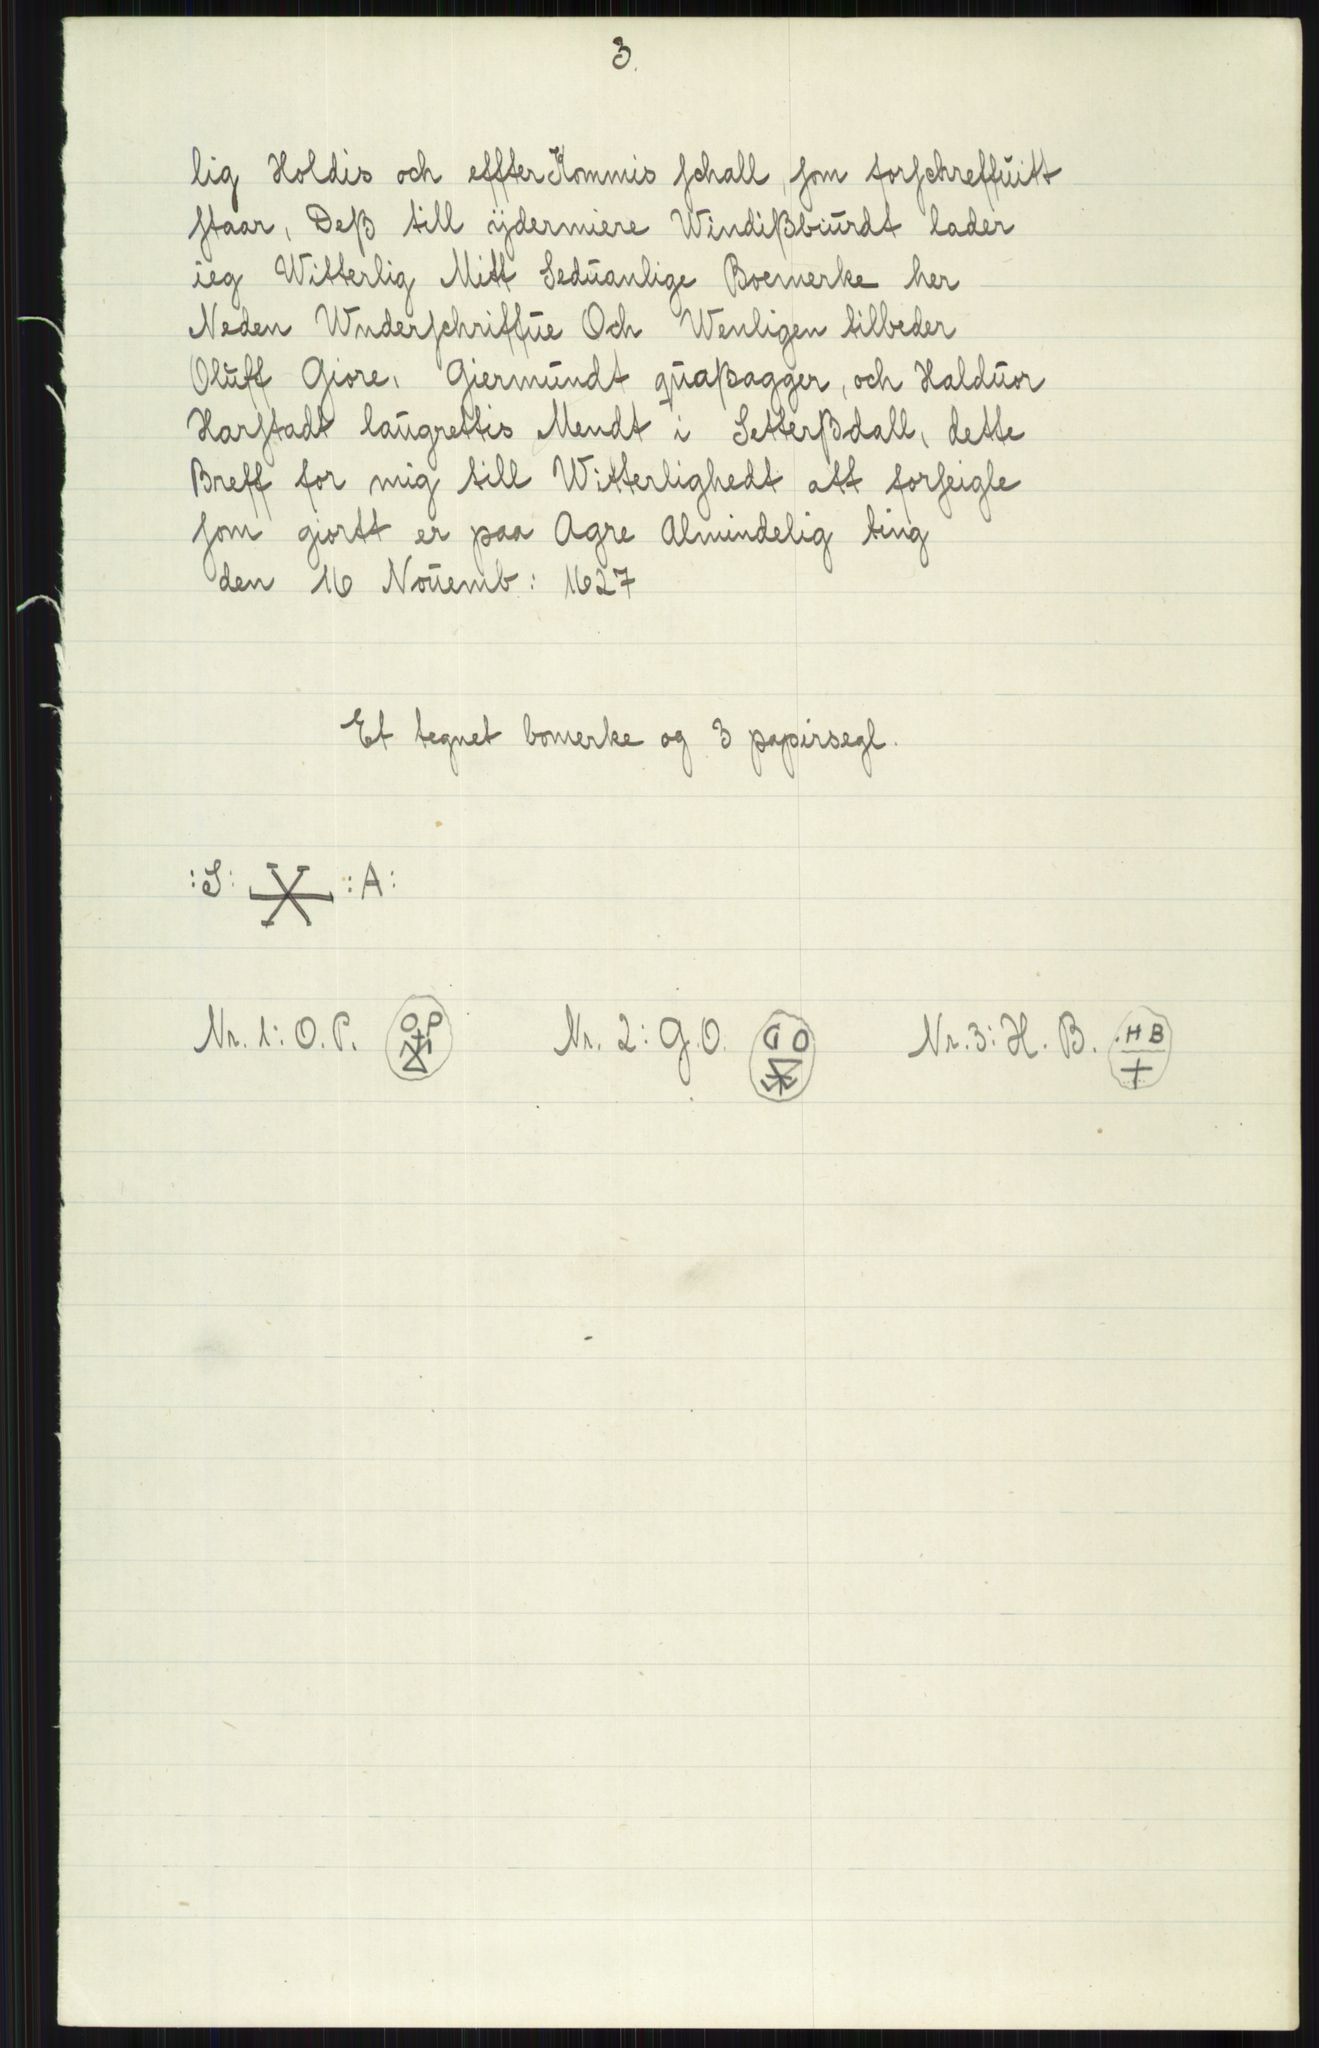 3.
lig Holdis och effter Kommis schall, som forschreffuitt
staar, Deß till ÿdermiere Windißbiurdt lader
ieg Witterlig Mitt Seduanlige Boemerke her
Neden Wnderschriffue Och Wenligen tilbeder
Oluff Giore, Giermundt quaßagger, och Halduor
Harstadt laugrettis Mendt i Setterßdall, dette
Breff for mig till Witterlighedt att forseigle
som giortt er paa Agre Almindelig ting
den 16 Nouemb: 1627
Et tegnet bomerke og 3 papirsegl.
:S: :A:
Nr. 1: O. P. O P Nr. 2: G. O. G O Nr. 3: H. B. . H B